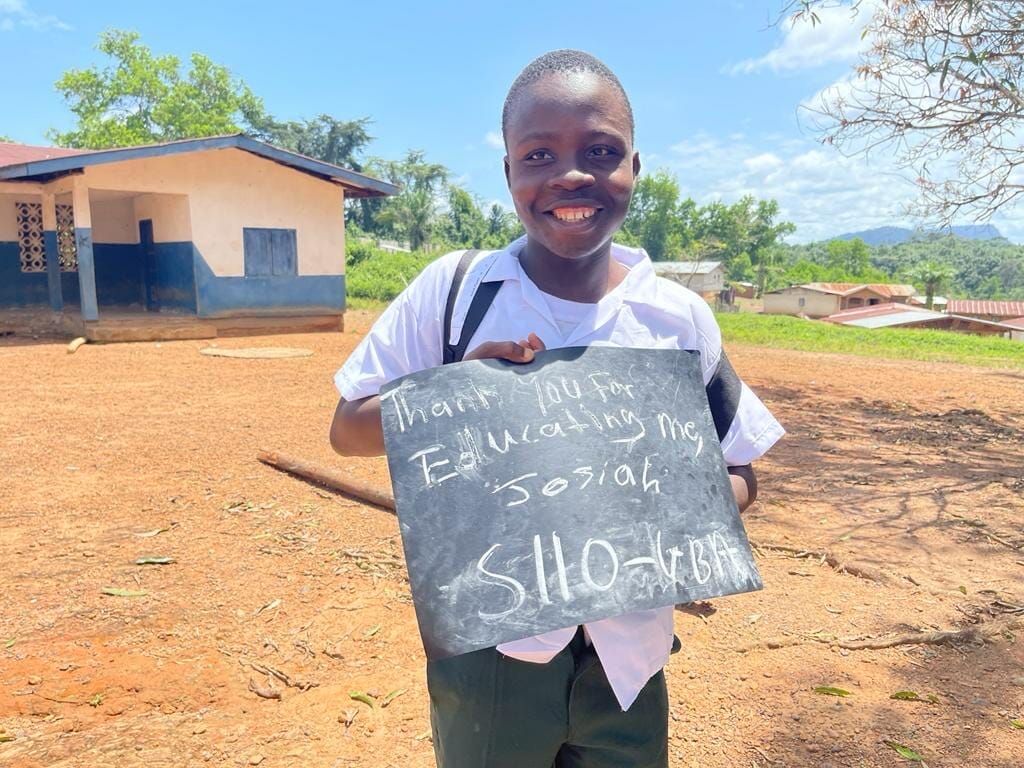 Thank You For
Educating me,
Josiah
S110-GBA